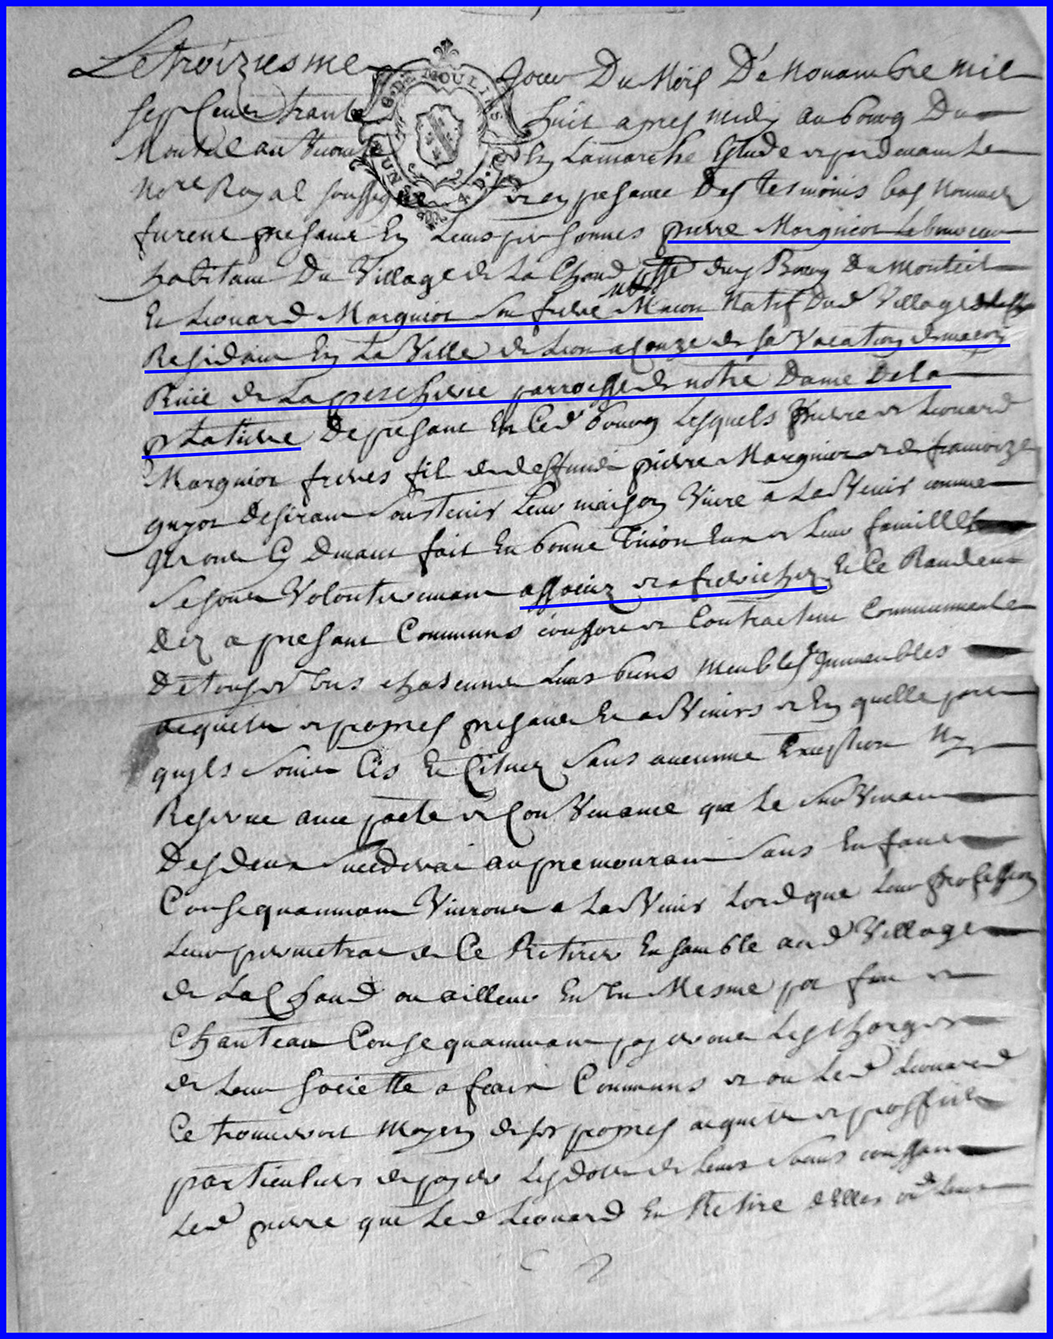 Le troiziesme Jour Du Mois De Nouambre mil
sept cent trante huit apres midy au bourg Du
Monteil au Vicomte En Lamarche Estude et par devant Le
nore Royal soussigné et en presance Des tesmoins bas nommes
furent presant En Leurs personnes pierre Margnior Lebourceau
habitant Du Village de La Chaud dud Bourg Du Monteil
Et Lionard Margnior Son frere Macon Natif Dud Village
Residant En La Ville de Lion a Cauze de Sa Vacation de macon
Ruüe de La pescherie parroisse de notre Dame De la
platiere De presant En Ced bourg Lesquels pierre et Leonard
Margnior freres fils de deffunt pierre Margnior et de francoize
guyot desirant Soustenir Leur maison Vivre a Ladvenir comme
ils ont Cy Dvant fait En bonne Union Eux et Leur famille
Se sont Volontairement assoiez et afrerichez Et Ce Randent
Dez a presant Communs et Contractent Communement
De tous et Uns chascunne Leurs biens meubles Immeubles
acquetz et propres presant Et advenirs et En quelle part
quyls Soient Cis Et Cituez Sans aucunne Exception Ny
Reserve avec pacte et Convenance que Le Survivant
Des deux Succederai au premourant Sans Enfant
Consequammant Vivront a Ladvenir Lord que Leur profession
Leur permetrat de Ce Retirer Ensamble aud Village
de La Chaud ou ailleur En Un Mesme pot feu et
Chanteau Consequammant payeront Les charges
de Leur Societte a frais Communs et ou Led Leonard
Ce trouveroit Moyen de ses propres acquetz et proffits
particuliers de payer Les dotte de Leurs Seurs
Led pierre que Led Leonard En Retire delles
S. DE MOULINS